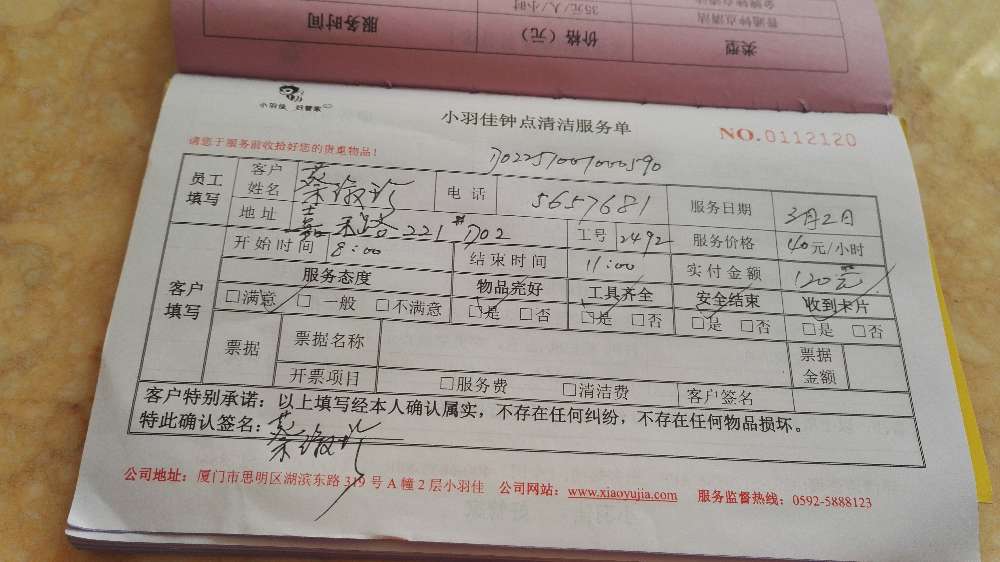 服务时间 价格（元） 类型
35元/人/小时 普通钟点清洁
小羽佳 好管家
小羽佳钟点清洁服务单
NO.0112120
请您于服务前收拾好您的贵重物品！
D022S1001000590
员工填写 客户姓名 蔡淑 电话 5657681 服务日期 3月2日
地址 嘉 路221#702 工号 2492 服务价格 40元/小时
客户填写 开始时间 8:00 结束时间 11:00 实付金额 120元
服务态度 物品完好 工具齐全 安全结束 收到卡片
□满意 □一般 □不满意 □是 □否 □是 □否 □是 □否 □是 □否
票据 票据名称 票据金额
开票项目 □服务费 □清洁费 客户签名
客户特别承诺：以上填写经本人确认属实，不存在任何纠纷，不存在任何物品损坏。
特此确认签名：蔡淑
公司地址：厦门市思明区湖滨东路319号A幢2层小羽佳 公司网站：www.xiaoyujia.com 服务监督热线：0592-5888123